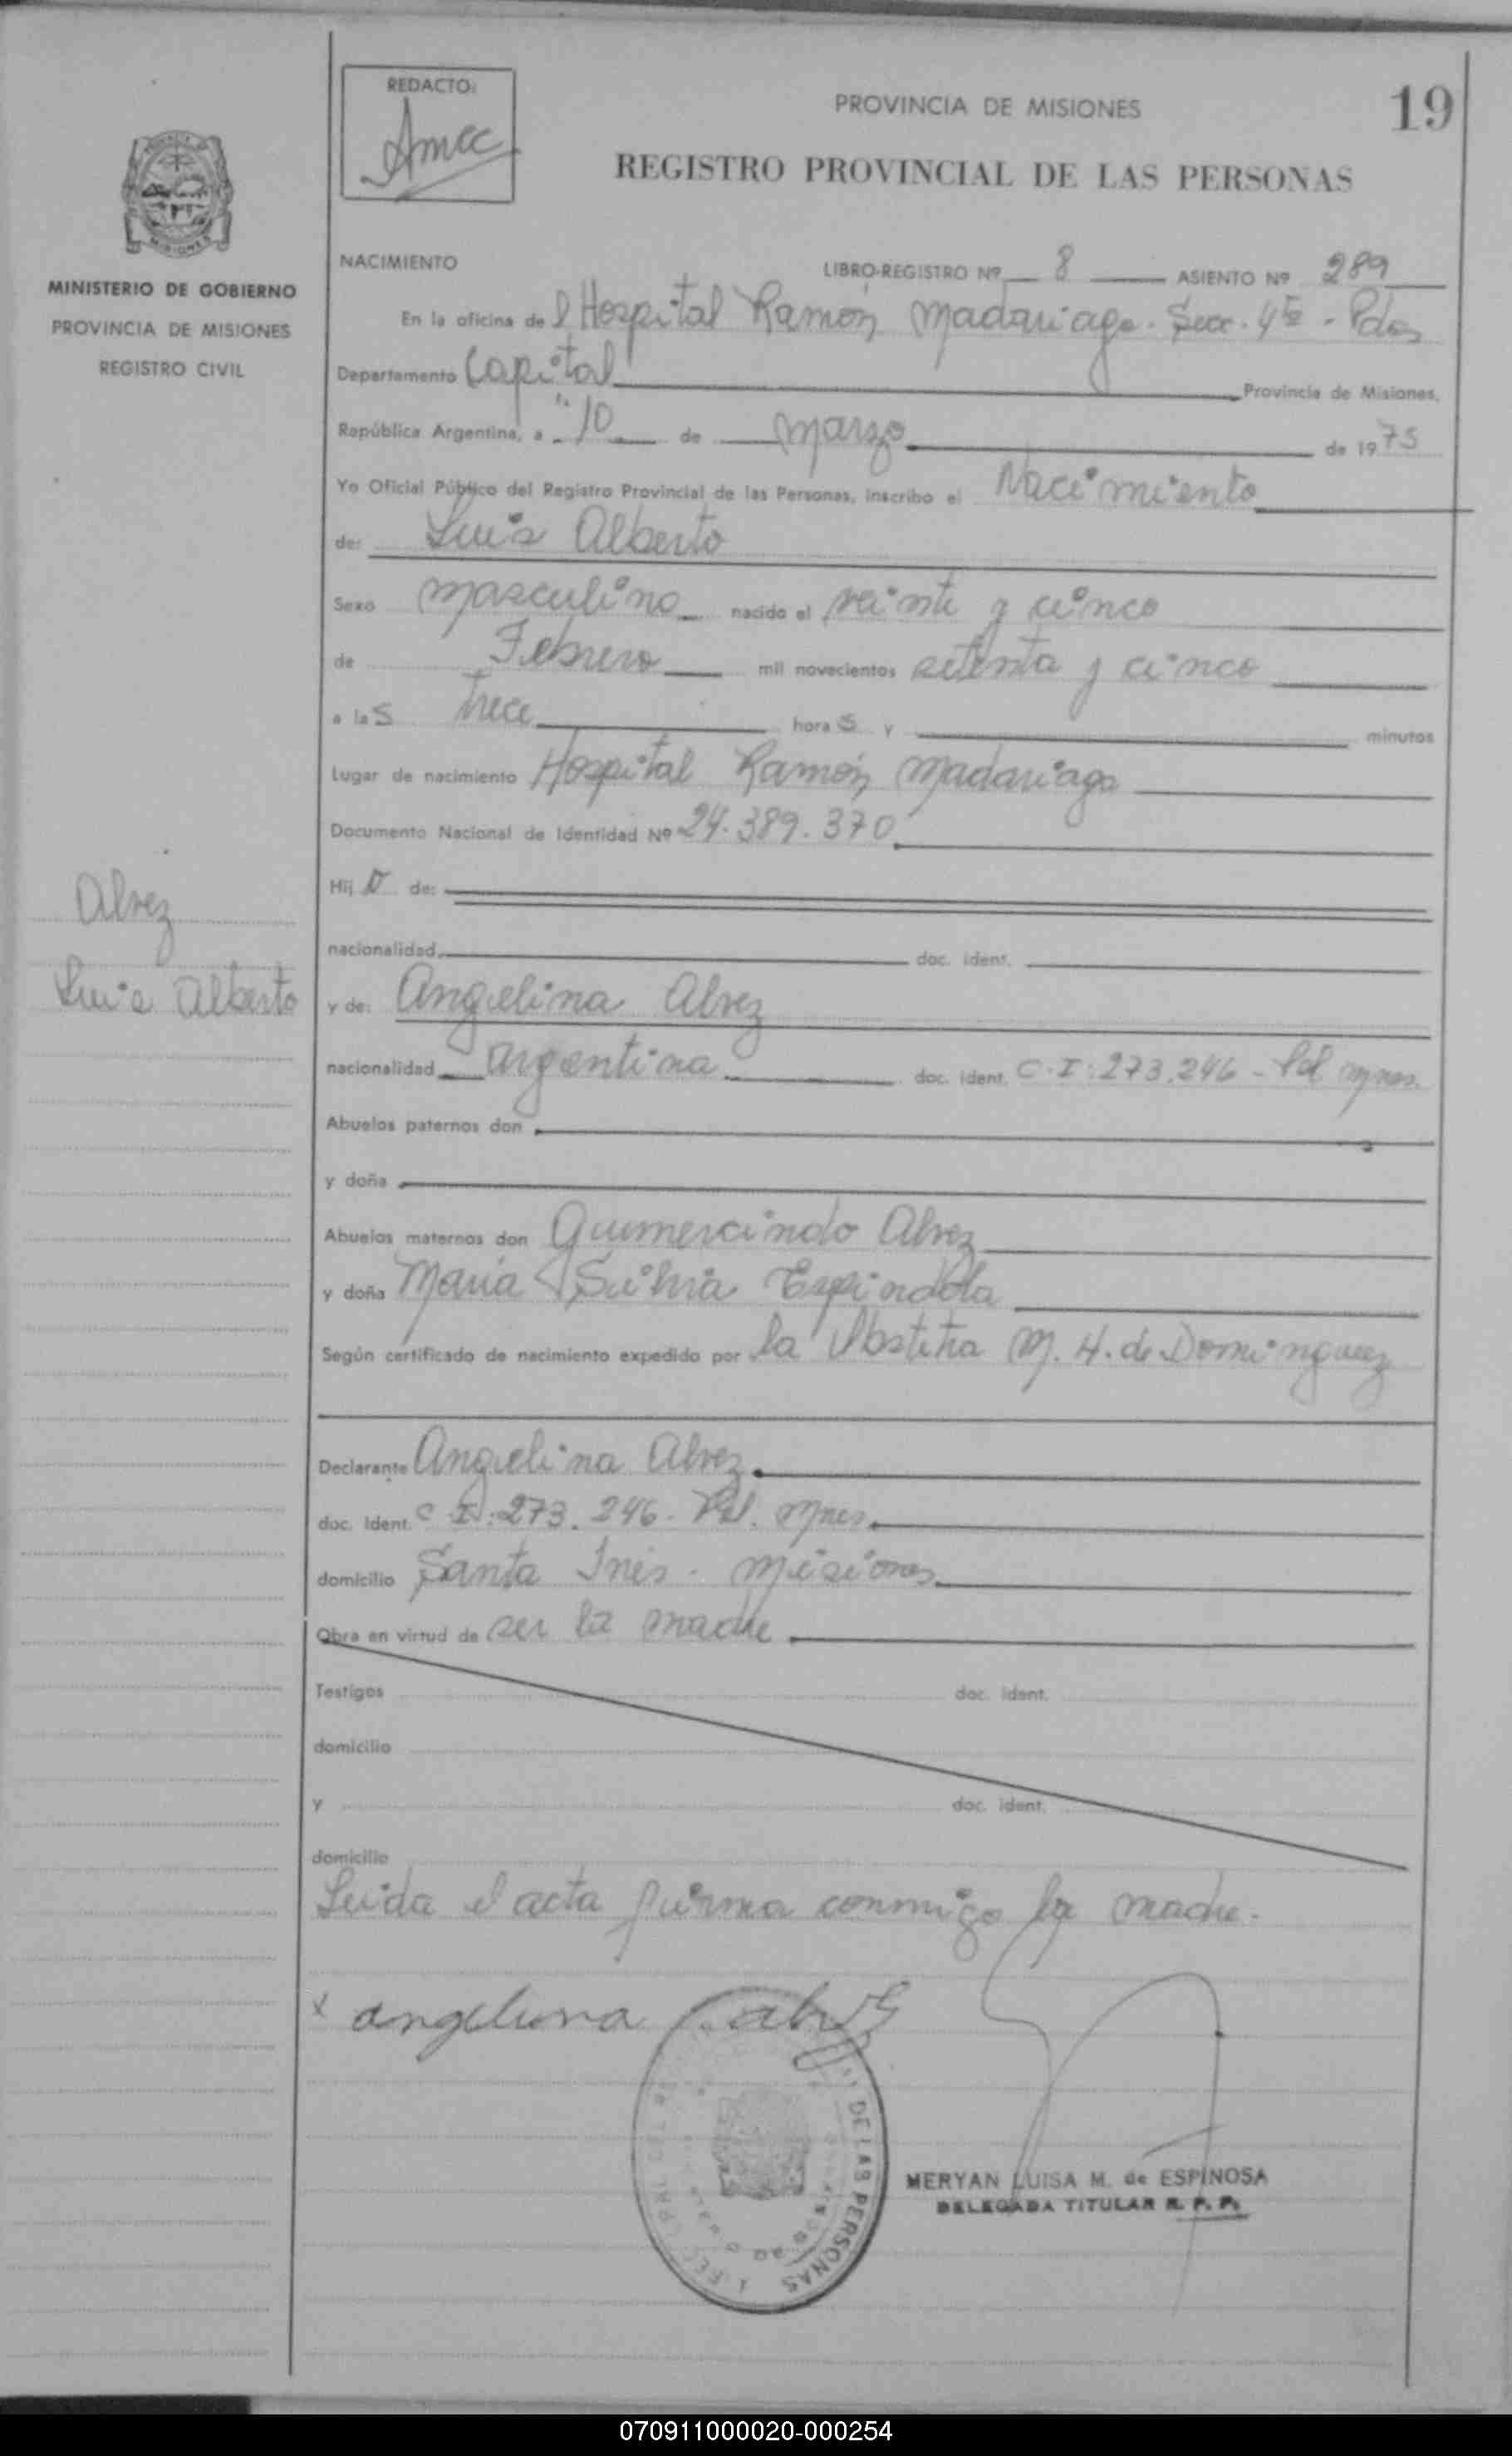 REDACTO:
PROVINCIA DE MISIONES
19
REGISTRO PROVINCIAL DE LAS PERSONAS
MINISTERIO DE GOBIERNO
PROVINCIA DE MISIONES
REGISTRO CIVIL
NACIMIENTO LIBRO-REGISTRO Nº 8 ASIENTO Nº 289
En la oficina del Hospital Ramón Madariaga - Secc. 4ta - Pdas
Departamento Capital Provincia de Misiones,
República Argentina, a 10 de marzo de 1975
Yo Oficial Público del Registro Provincial de las Personas, inscribo el Nacimiento
de: Luis Alberto
Sexo masculino nacido el veinte y cinco
de Febrero mil novecientos setenta y cinco
a las trece horas y minutos
Lugar de nacimiento Hospital Ramón Madariaga
Documento Nacional de Identidad Nº 24.389.370
Hijo de:
nacionalidad doc. ident.
Alvez
Luis Alberto
y de: Angelina Alvez
nacionalidad argentina doc. ident. C.I: 273.246 - Pol mnes.
Abuelos paternos don
y doña
Abuelos maternos don Gumercindo Alvez
y doña Maria Silvia Espindola
Según certificado de nacimiento expedido por la Obstetra M. H. de Dominguez
Declarante Angelina Alvez
doc. Ident. C.I: 273.246 - Pol. Mnes
domicilio Santa Inés - Misiones
Obra en virtud de ser la madre
Testigos doc. ident.
domicilio
y doc. ident.
domicilio
Leida el acta firma conmigo la madre.
x angelina alvez
DE LAS PERSONAS
MERYAN LUISA M. de ESPINOSA
DELEGADA TITULAR R. P. P.
070911000020-000254